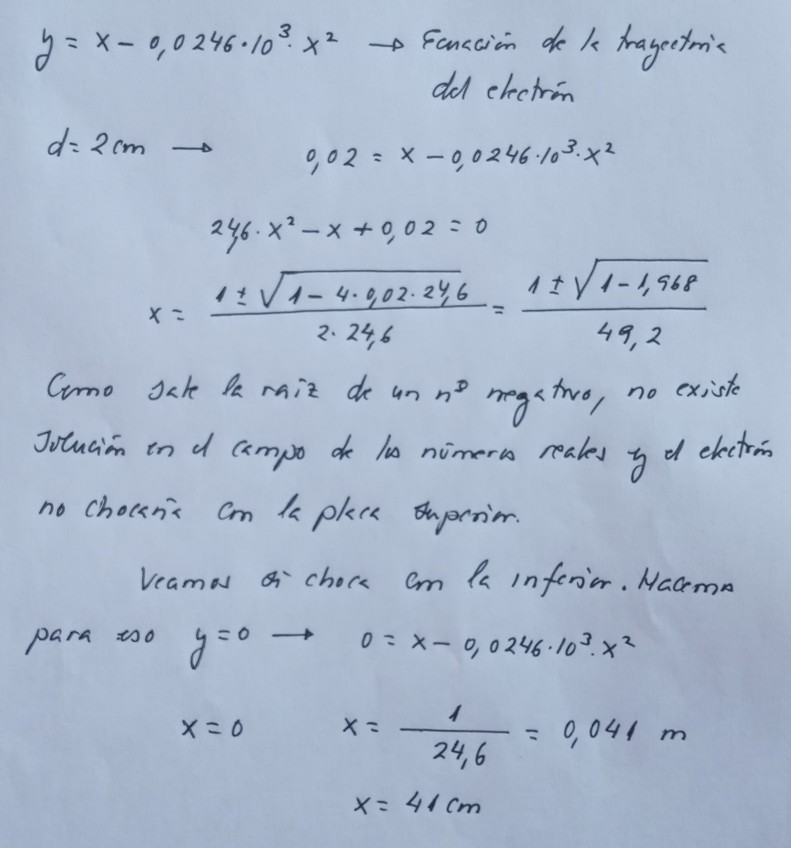 y = x - 0,0246·10³·x² → Ecuación de la trayectoria
del electrón
d = 2 cm → 0,02 = x - 0,0246·10³·x²
24,6·x² - x + 0,02 = 0
x = (1 ± √(1 - 4·0,02·24,6)) / (2·24,6) = (1 ± √(1 - 1,968)) / 49,2
Como sale la raíz de un nº negativo, no existe
solución en el campo de los números reales y el electrón
no chocaría con la placa superior.
Veamos si choca con la inferior. Hacemos
para eso y = 0 → 0 = x - 0,0246·10³·x²
x = 0 x = 1 / 24,6 = 0,041 m
x = 41 cm